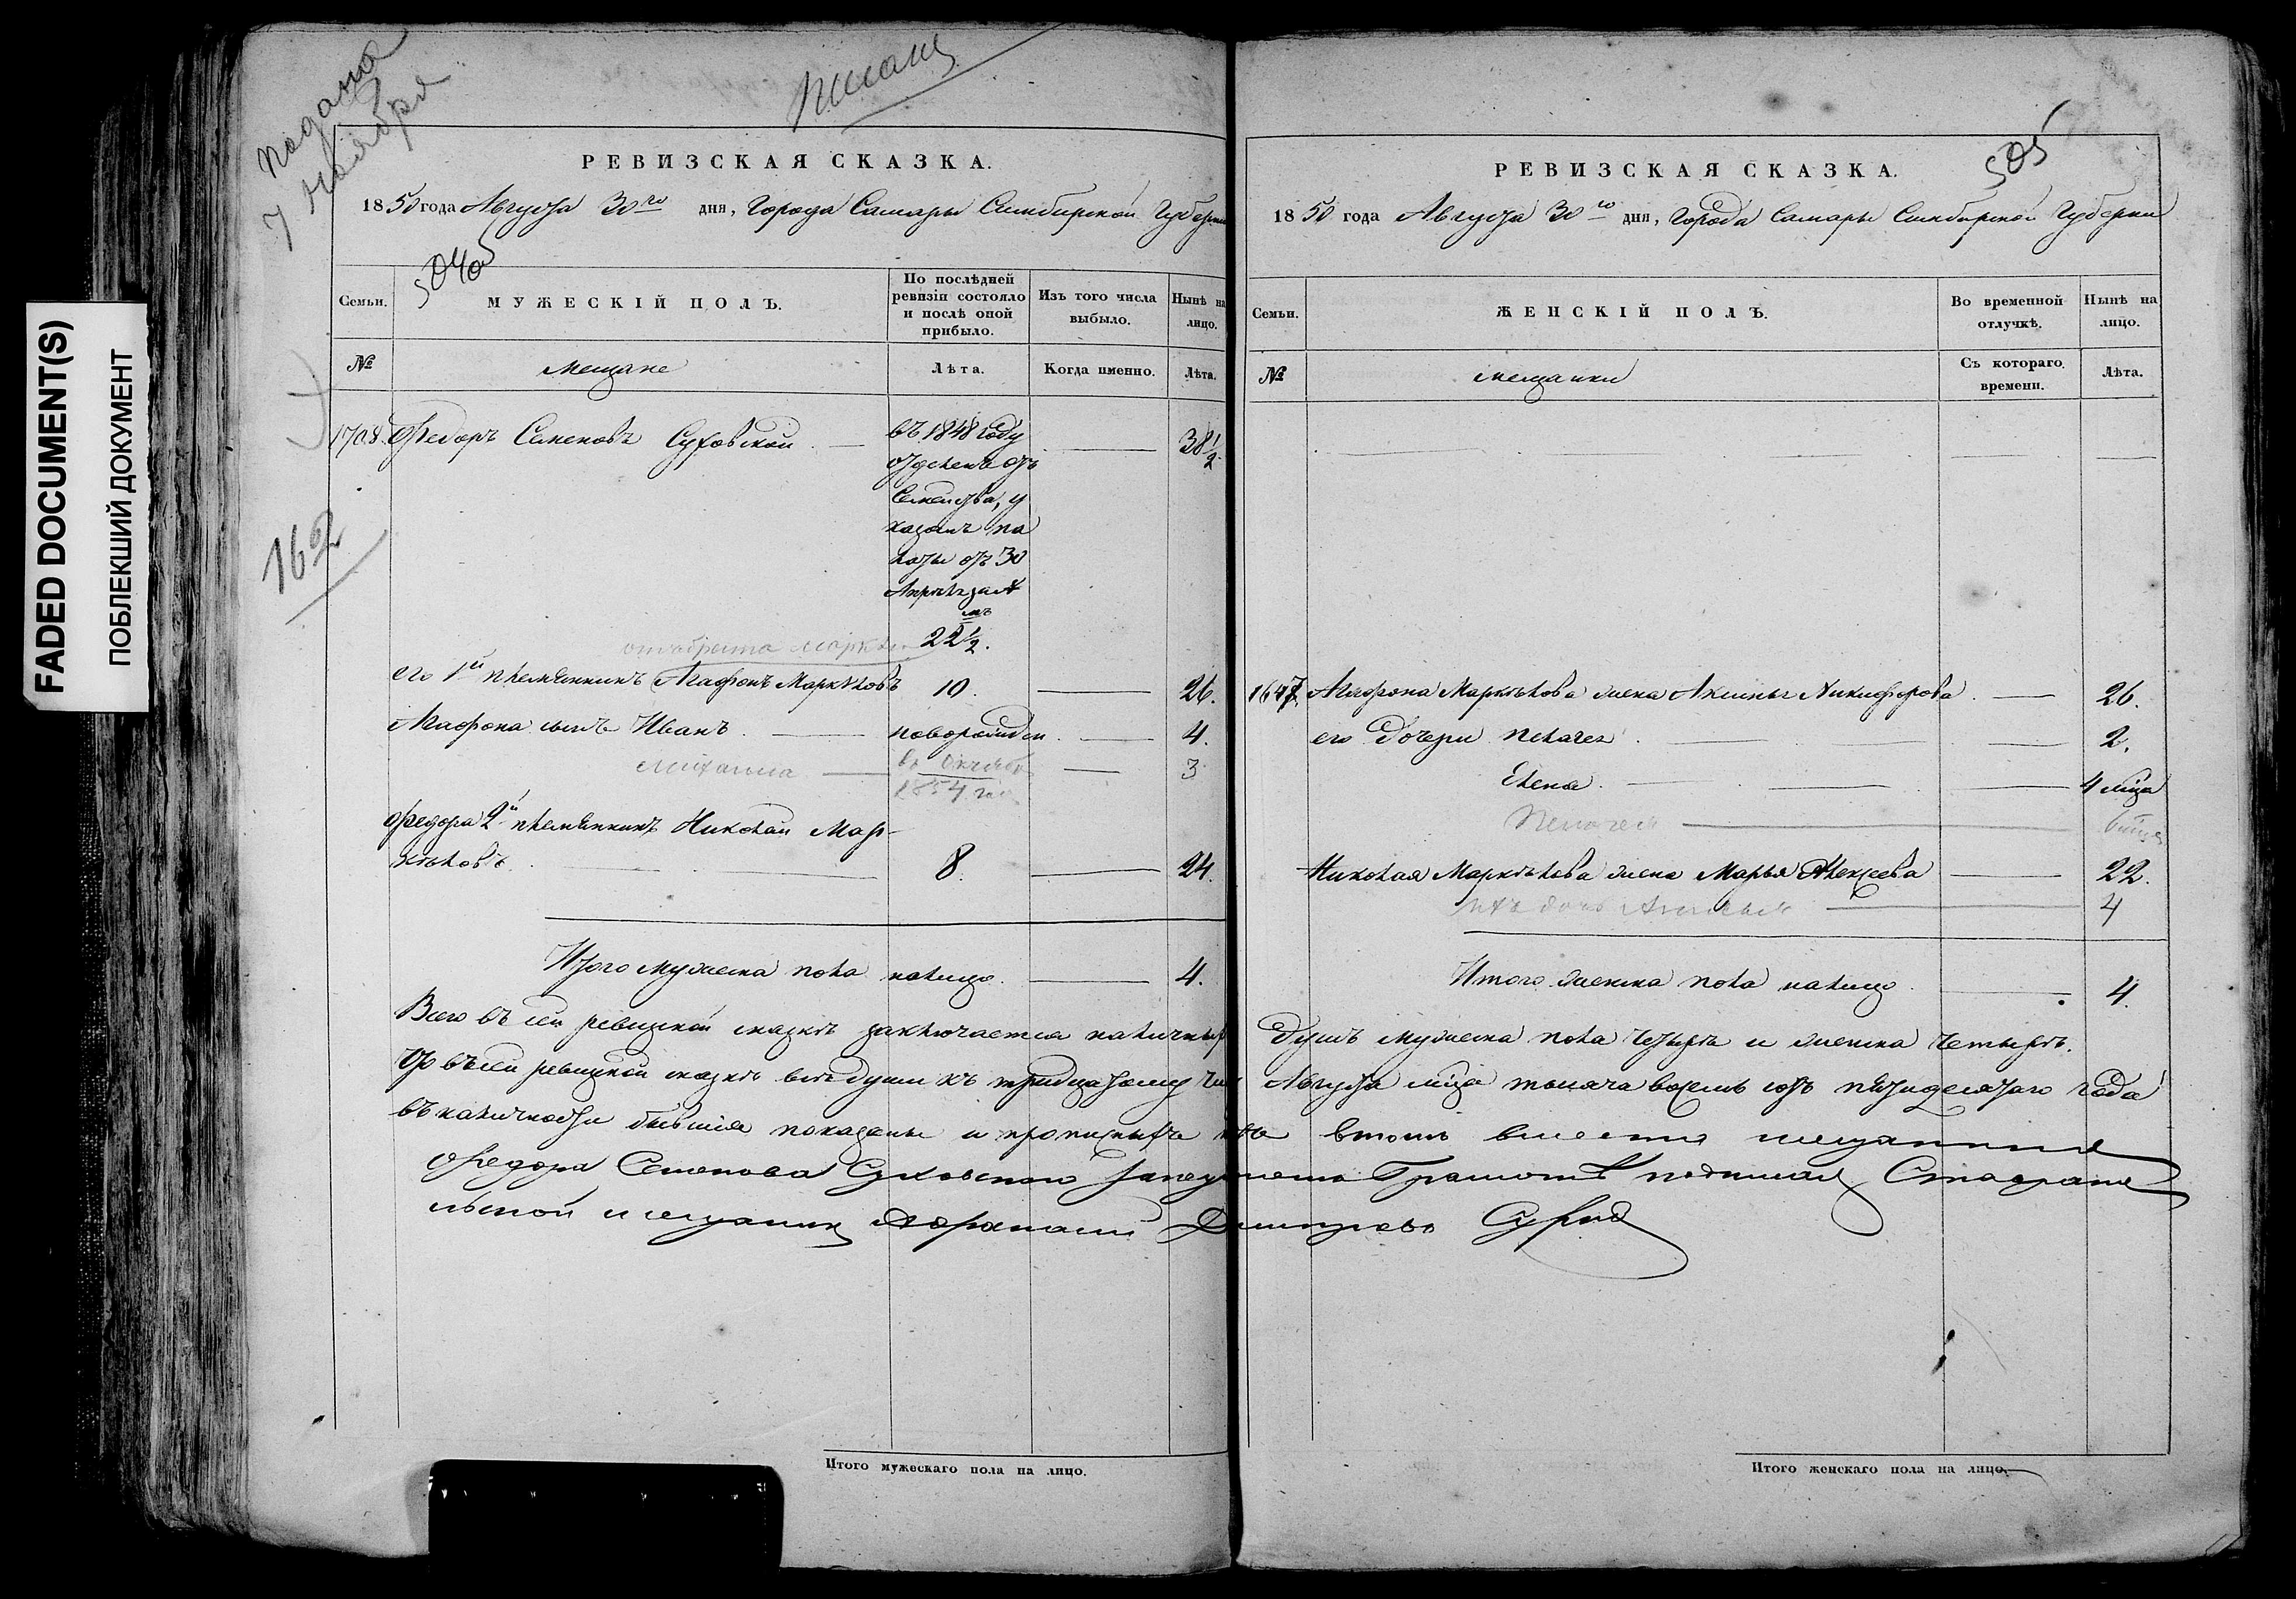 FADED DOCUMENT(S)
ПОБЛЕКШИЙ ДОКУМЕНТ
подана
7 Ноября
162
РЕВИЗСКАЯ СКАЗКА.
1850 года Августа 30го дня, Города Самары Симбирской Губернии
Семьи.
МУЖЕСКІЙ ПОЛЪ.
По послѣдней ревизіи состояло и послѣ оной прибыло.
Изъ того числа выбыло.
Нынѣ на лицо.
№
мещане
Лѣта.
Когда именно.
Лѣта.
1708. Федоръ Семеновъ Суховской 38 1/2
въ 1848 году
отделенъ отъ
Семейства, у
казамъ па
латы отъ 30
Апреля за №
22 1/2.
от брата Маркела
его 1й племянникъ Агафонъ Маркѣловъ 10. 26.
Агафона сынъ Иванъ новорожден. 4.
Михаила 3
1854 года
Федора 2й племянникъ Николай Мар-
кѣловъ. 8. 24.
Итого мужеска пола налицо. 4.
РЕВИЗСКАЯ СКАЗКА.
505
1850 года Августа 30го дня, Города Самары Симбирской Губернии
Семьи.
ЖЕНСКІЙ ПОЛЪ.
Во временной отлучкѣ.
Нынѣ на лицо.
№
мещанки
Съ котораго времени.
Лѣта.
Агафона Маркѣлова жена Аксинья Никифорова 26.
его дочери Пелагея 2.
Елена 4 мѣца
Пелагея
Николая Маркѣлова жена Марья Алексеева 22.
ихъ дочь 4
Итого женска пола налицо 4.
Всего въ сей ревизской сказкѣ заключается наличныхъ душъ мужеска пола четыре и женска четыре.
Что въ сей ревизской сказкѣ всѣ души къ тридцатому чис. Августа мѣца тысяча восемь сотъ пятидесятаго года
въ наличности бывшія показаны и прописныхъ нѣтъ в томъ вместо мещанина
Федора Семенова Суховского
мещанин Афанасий Дмитриевъ
Итого мужескаго пола на лицо.
Итого женскаго пола на лицо.